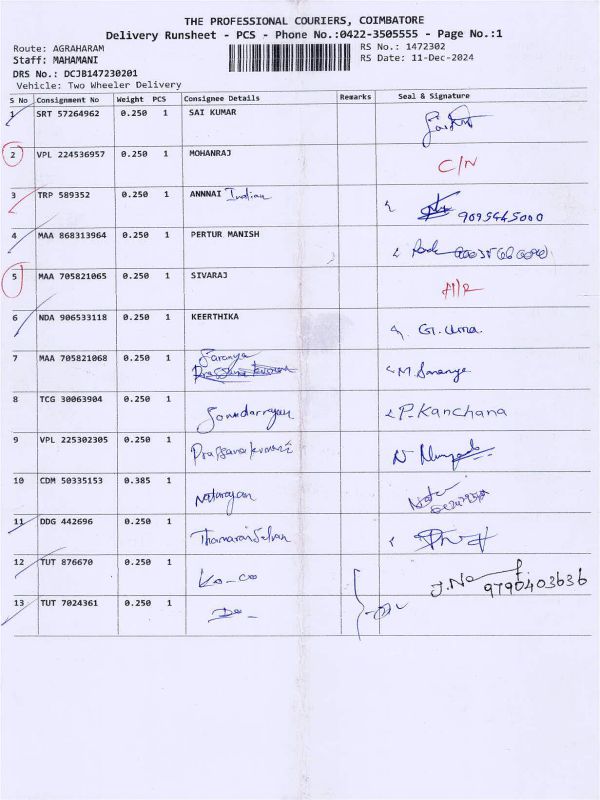 THE PROFESSIONAL COURIERS, COIMBATORE
Delivery Runsheet - PCS - Phone No.:0422-3505555 - Page No.:1
Route: AGRAHARAM RS No.: 1472302
Staff: MAHAMANI RS Date: 11-Dec-2024
DRS No.: DCJB147230201
Vehicle: Two Wheeler Delivery
S No Consignment No Weight PCS Consignee Details Remarks Seal & Signature
1 SRT 57264962 0.250 1 SAI KUMAR
2 VPL 224536957 0.250 1 MOHANRAJ C/N
3 TRP 589352 0.250 1 ANNNAI Indian 9095445000
4 MAA 868313964 0.250 1 PERTUR MANISH
5 MAA 705821065 0.250 1 SIVARAJ
6 NDA 906533118 0.250 1 KEERTHIKA G. Uma.
7 MAA 705821068 0.250 1 Saranya M. Saranya
8 TCG 30063904 0.250 1 Soundarrajan P. Kanchana
9 VPL 225302305 0.250 1
10 CDM 50335153 0.385 1 Natarayan
11 DDG 442696 0.250 1 Thamarai Selvan
12 TUT 876670 0.250 1 Ko-co 9790403636
13 TUT 7024361 0.250 1 Do